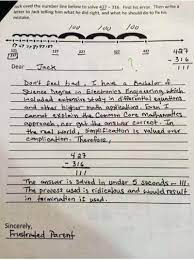 Jack used the number line below to solve 427 - 316. Find his error. Then write a
letter to Jack telling him what he did right, and what he should do to fix his
mistake.
427
- 316
111
Dear Jack,
Don't feel bad. I have a Bachelor of
Science Degree in Electronics Engineering which
included extensive study in differential equations
and other higher math applications. Even I
cannot explain the Common Core Mathematics
approach, nor get the answer correct. In
the real world, simplification is valued over
complication. Therefore,
427
- 316
111
The answer is solved in under 5 seconds - 111.
The process used is ridiculous and would result
in termination if used.
Sincerely,
Frustrated Parent